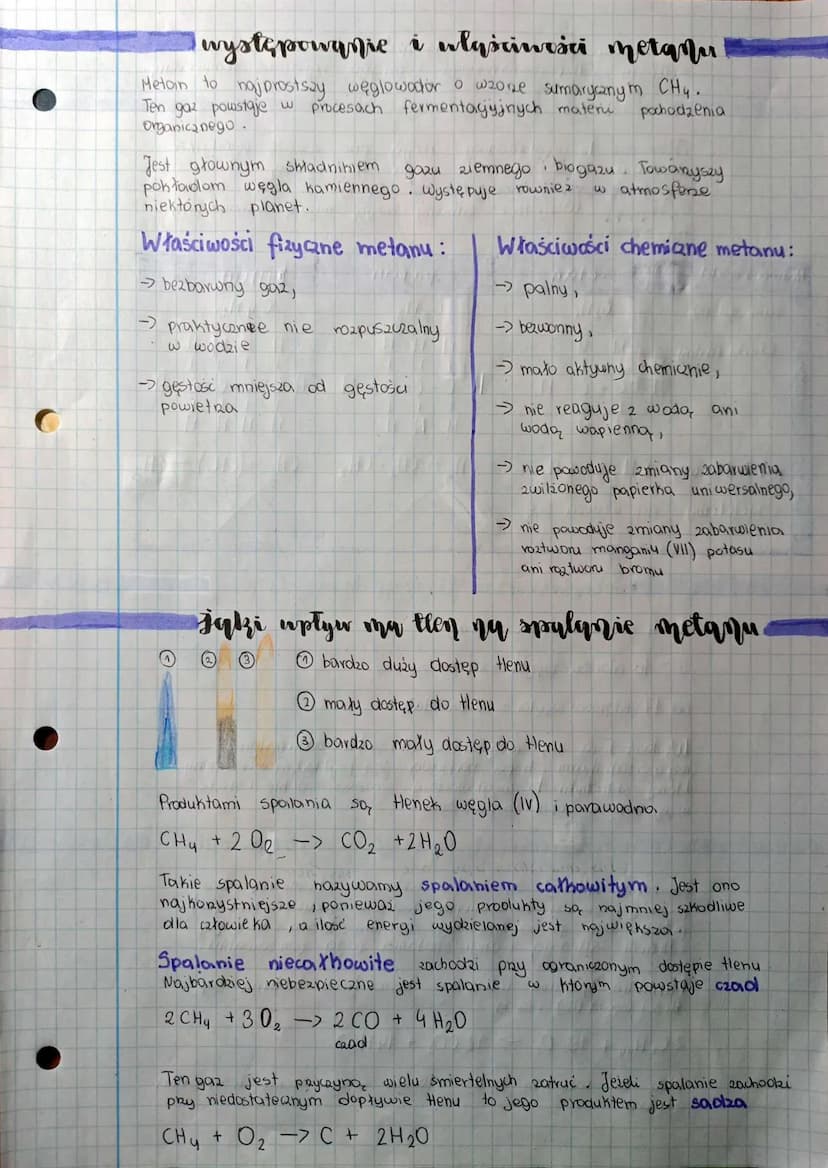 występowanie i właściwości metanu
Metan to najprostszy węglowodór o wzorze sumarycznym CH₄.
Ten gaz powstaje w procesach fermentacyjnych materii pochodzenia
organicznego.
Jest głównym składnikiem gazu ziemnego i biogazu. Towarzyszy
pokładom węgla kamiennego. Występuje również w atmosferze
niektórych planet.
Właściwości fizyczne metanu:
→ bezbarwny gaz,
→ praktycznie nie rozpuszczalny
w wodzie
→ gęstość mniejsza od gęstości
powietrza
Właściwości chemiczne metanu:
→ palny,
→ bezwonny,
→ mało aktywny chemicznie,
→ nie reaguje z wodą ani
wodą wapienną,
→ nie powoduje zmiany zabarwienia
zwilżonego papierka uniwersalnego,
→ nie powoduje zmiany zabarwienia
roztworu manganiu (VII) potasu
ani roztworu bromu
jaki wpływ ma tlen na spalanie metanu
① ② ③ ① bardzo duży dostęp tlenu
② mały dostęp do tlenu
③ bardzo mały dostęp do tlenu
Produktami spalania są tlenek węgla (IV) i para wodna.
CH₄ + 2 O₂ → CO₂ + 2H₂O
Takie spalanie nazywamy spalaniem całkowitym. Jest ono
najkorzystniejsze, ponieważ jego produkty są najmniej szkodliwe
dla człowieka, a ilość energi wydzielanej jest największa.
Spalanie niecałkowite zachodzi przy ograniczonym dostępie tlenu
Najbardziej niebezpieczne jest spalanie w którym powstaje czad
2 CH₄ + 3 O₂ → 2 CO + 4 H₂O
czad
Ten gaz jest przyczyną wielu śmiertelnych zatruć. Jeżeli spalanie zachodzi
przy niedostatecznym dopływie tlenu to jego produktem jest sadza
CH₄ + O₂ → C + 2H₂O